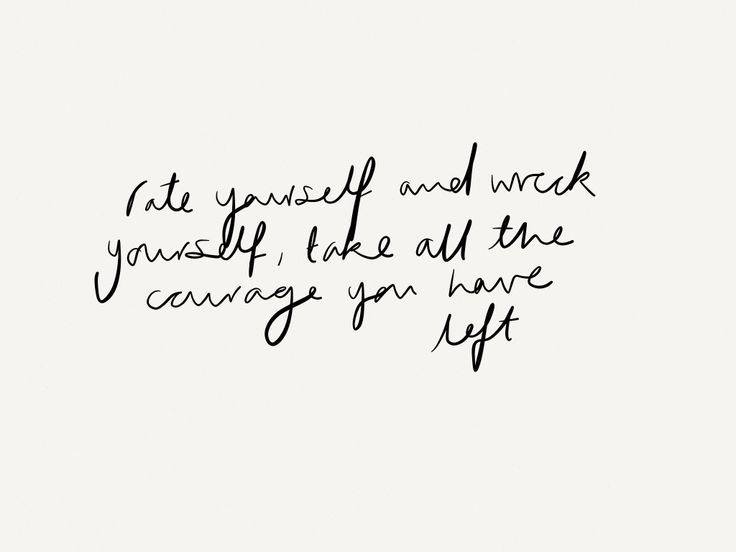 rate yourself and wreck
yourself, take all the
courage you have
left